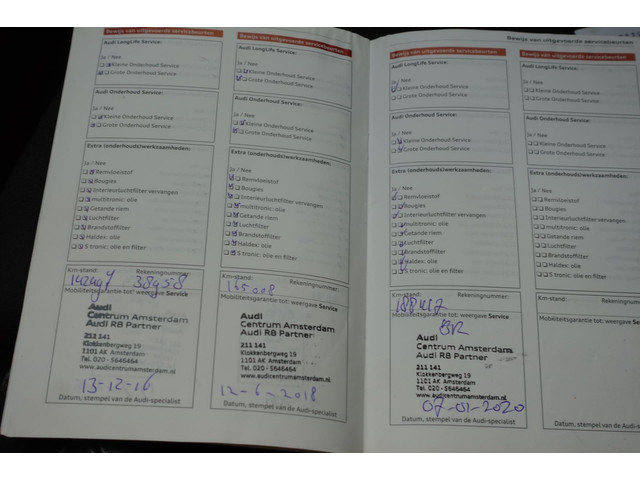 Bewijs van uitgevoerde servicebeurten
Audi LongLife Service:
Ja / Nee
Kleine Onderhoud Service
Grote Onderhoud Service
Audi Onderhoud Service:
Ja / Nee
Kleine Onderhoud Service
Grote Onderhoud Service
Extra (onderhouds)werkzaamheden:
Ja / Nee
Remvloeistof
Bougies
Interieurluchtfilter vervangen
multitronic: olie
Getande riem
Luchtfilter
Brandstoffilter
Haldex: olie
S tronic: olie en filter
Km-stand: Rekeningnummer:
38958
Mobiliteitsgarantie tot: weergave Service
Audi
Centrum Amsterdam
Audi R8 Partner
211 141
Klokkenbergweg 19
1101 AK Amsterdam
Tel. 020 - 5646464
www.audicentrumamsterdam.nl
13-12-16
Datum, stempel van de Audi-specialist
Bewijs van uitgevoerde servicebeurten
Audi LongLife Service:
Ja / Nee
Kleine Onderhoud Service
Grote Onderhoud Service
Audi Onderhoud Service:
Ja / Nee
Kleine Onderhoud Service
Grote Onderhoud Service
Extra (onderhouds)werkzaamheden:
Ja / Nee
Remvloeistof
Bougies
Interieurluchtfilter vervangen
multitronic: olie
Getande riem
Luchtfilter
Brandstoffilter
Haldex: olie
S tronic: olie en filter
Km-stand: Rekeningnummer:
165008
Mobiliteitsgarantie tot: weergave Service
Audi
Centrum Amsterdam
Audi R8 Partner
211 141
Klokkenbergweg 19
1101 AK Amsterdam
Tel. 020 - 5646464
www.audicentrumamsterdam.nl
12-6-2018
Datum, stempel van de Audi-specialist
Bewijs van uitgevoerde servicebeurten
Bewijs van uitgevoerde servicebeurten
Audi LongLife Service:
Ja / Nee
Kleine Onderhoud Service
Grote Onderhoud Service
Audi Onderhoud Service:
Ja / Nee
Kleine Onderhoud Service
Grote Onderhoud Service
Extra (onderhouds)werkzaamheden:
Ja / Nee
Remvloeistof
Bougies
Interieurluchtfilter vervangen
multitronic: olie
Getande riem
Luchtfilter
Brandstoffilter
Haldex: olie
S tronic: olie en filter
Km-stand: Rekeningnummer:
Mobiliteitsgarantie tot: weergave Service
BR
Audi
Centrum Amsterdam
Audi R8 Partner
211 141
Klokkenbergweg 19
1101 AK Amsterdam
Tel. 020 - 5646464
www.audicentrumamsterdam.nl
07-01-2020
Datum, stempel van de Audi-specialist
Bewijs van uitgevoerde servicebeurten
Audi LongLife Service:
Ja / Nee
Kleine Onderhoud Service
Grote Onderhoud Service
Audi Onderhoud Service:
Ja / Nee
Kleine Onderhoud Service
Grote Onderhoud Service
Extra (onderhouds)werkzaamheden:
Ja / Nee
Remvloeistof
Bougies
Interieurluchtfilter
multitronic: olie
Getande riem
Luchtfilter
Brandstoffilter
Haldex: olie
S tronic: olie en filter
Km-stand:
Mobiliteitsgarantie tot: weergave
Datum, stempel van de Audi-